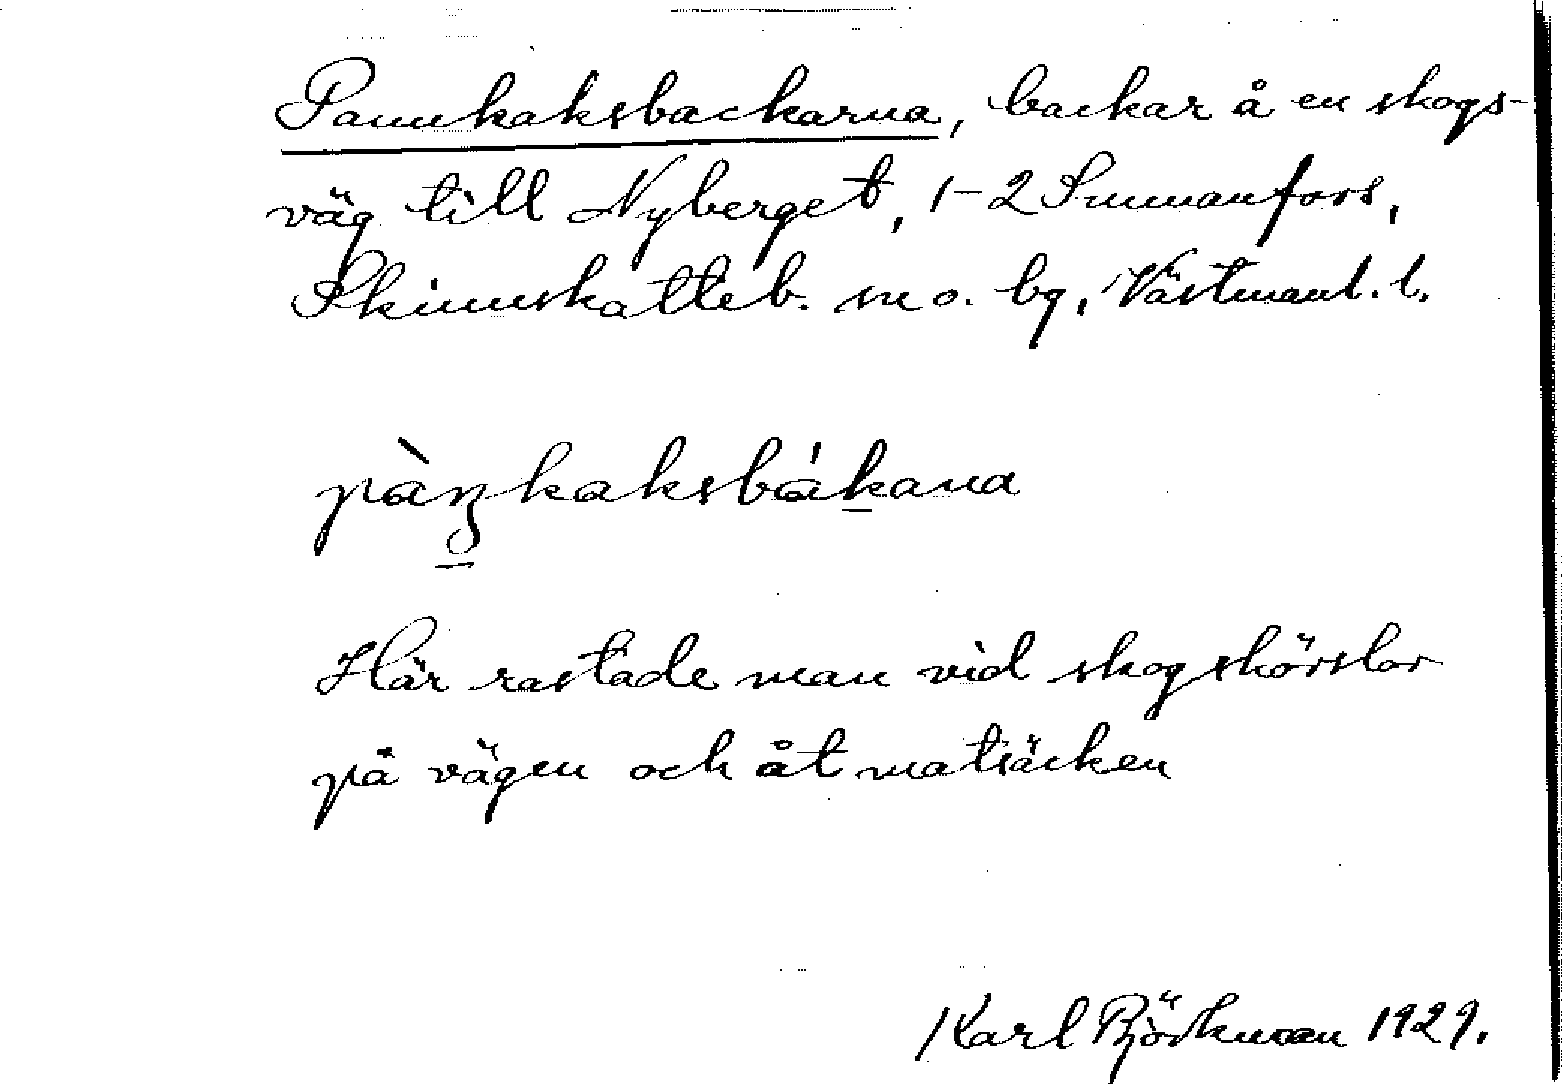 Pannkaksbackarna, backar å en skogs-
väg till Nyberget, 1-2 Sunnanfors,
Skinnskatteb. sn o. bg, Västmanl. l.
pàn̥kaksbákana
Här rastade man vid skogskörslor
på vägen och åt matsäcken
Karl Björkman 1929.